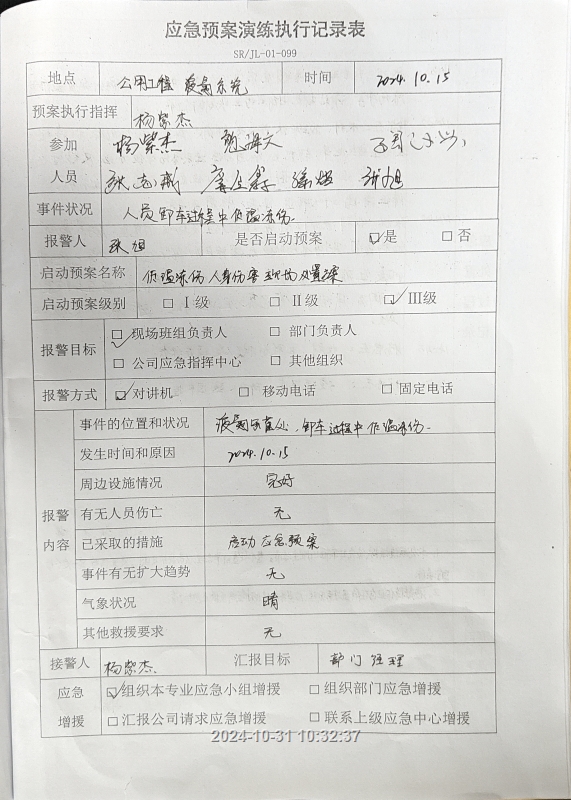 应急预案演练执行记录表
SR/JL-01-099
地点 公用工程 液氮系统 时间 2024.10.15
预案执行指挥 杨紫杰
参加 杨紫杰
人员
事件状况 人员卸车过程中低温冻伤.
报警人 张旭 是否启动预案 ☑是 □否
启动预案名称 低温冻伤人身伤害现场处置案
启动预案级别 □Ⅰ级 □Ⅱ级 ☑Ⅲ级
报警目标 ☑现场班组负责人 □部门负责人
□公司应急指挥中心 □其他组织
报警方式 ☑对讲机 □移动电话 □固定电话
报警内容 事件的位置和状况 卸车过程中低温冻伤.
发生时间和原因 2024.10.15
周边设施情况 完好
有无人员伤亡 无
已采取的措施 启动应急预案
事件有无扩大趋势 无
气象状况 晴
其他救援要求 无
接警人 杨紫杰. 汇报目标 部门经理
应急 ☑组织本专业应急小组增援 □组织部门应急增援
增援 □汇报公司请求应急增援 □联系上级应急中心增援
2024-10-31 10:32:37